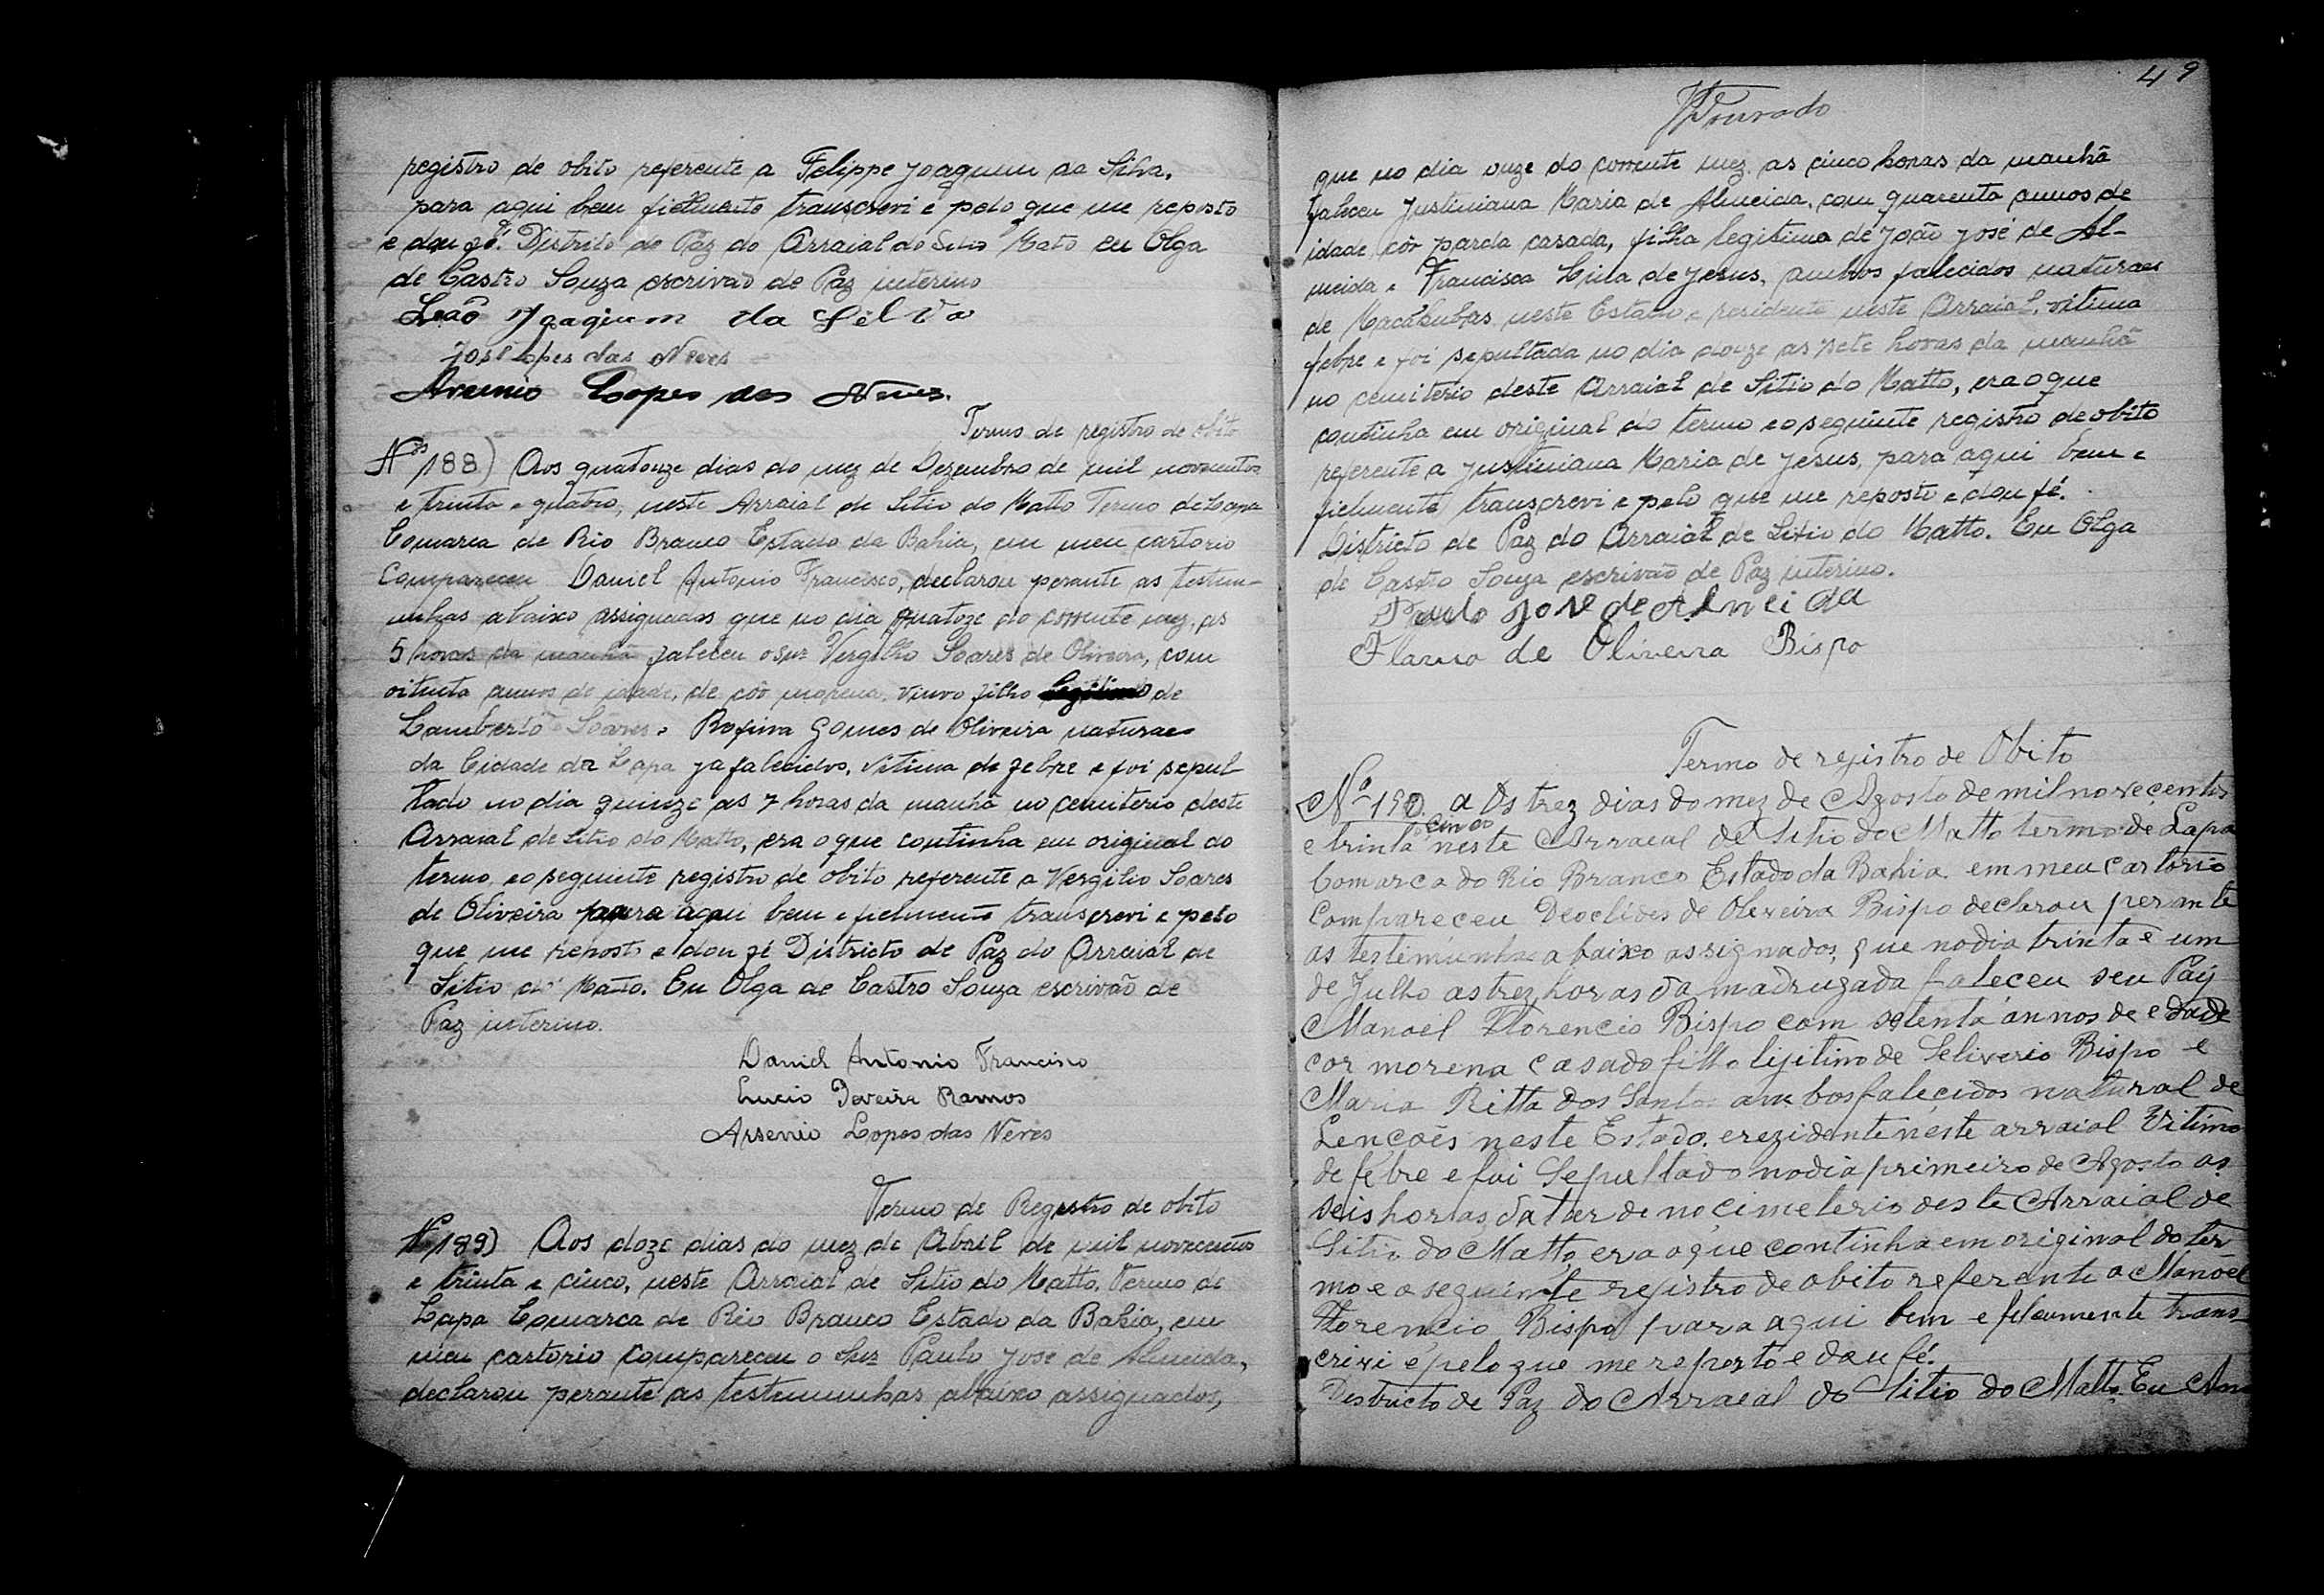 registro de obito referente a Felippe Joaquim da Silva,
para aqui bem fielmente transcrevi e pelo que me reposto
e dou fé. Distrito de Paz do Arraial do Sitio Mato eu Olga
de Castro Souza escrivão de Paz interino
Joaquim da Selva
José Lopes das Neves
Arsenio Lopes das Neves.
Termo de registro de obito
Nº 188) Aos quatorze dias do mez de Dezembro de mil novecentos
e trinta e quatro, neste Arraial de Sitio do Matto Termo de Lapa
Comarca de Rio Branco Estado da Bahia, em meu cartorio
Compareceu Daniel Antonio Francisco, declarou perante as testem-
unhas abaixo assignados que no dia quatoze do corrente mez, as
5 horas da manhã faleceu o snr Vergilho Soares de Oliveira, com
oitenta annos de idade, de côr morena, viuvo filho de
Lamberto Soares e Rofina Gomes de Oliveira naturaes
da Cidade da Lapa ja falecidos, vitima de febre e foi sepul-
tado no dia quinze as 7 horas da manhã no cemiterio deste
Arraial de Sitio do Matto, era o que continha em original do
termo, e o seguinte registro de obito referente a Vergilio Soares
de Oliveira para aqui bem e fielmente transcrevi e pelo
que me reposto e dou fé Districto de Paz do Arraial de
Sitio do Matto. Eu Olga de Castro Souza escrivão de
Paz interino.
Daniel Antonio Francisco
Lucio Ramos
Arsenio Lopes das Neves
Termo de Registro de obito
Nº 189) Aos doze dias do mez de Abril de mil novecentos
e trinta e cinco, neste Arraial de Sitio do Matto, Termo de
Lapa Comarca de Rio Branco Estado da Bahia, em
meu cartorio compareceu o Snr Paulo José de Almeida,
declarou perante as testemunhas abaixo assignados,
49
que no dia onze do corrente mez, as cinco horas da manhã
faleceu Justiniana Maria de Almeida, com quarenta annos de
idade côr parda casada, filha legitima de João José de Al-
meida e Francisca de Jesus, ambos falecidos naturaes
de Macahubas neste Estado e residente neste Arraial, vitima
febre e foi sepultada no dia doze as sete horas da manhã
no cemiterio deste Arraial de Sitio do Matto, era o que
continha em original do termo e o seguinte registro de obito
referente a Justiniana Maria de Jesus, para aqui bem e
fielmente transcrevi e pelo que me reposto e dou fé.
Districto de Paz do Arraial de Sitio do Matto. Eu Olga
de Castro Souza escrivão de Paz interino.
Paulo José de Almeida
de Oliveira Bispo
Termo de rejistro de Obito
Nº 190. aos trez dias do mez de Agosto de mil novecentos
e trinta cinco neste Arraeal de Sitio do Matto termo de Lapa
Comarca do Rio Branco Estado da Bahia. em meu cartorio
compareceu Deoclides de Oleveira Bispo declarou perante
as testemunhas abaixo assignados, que no dia trinta e um
de Julho as trez horas da madrugada faleceu seu Pay
Manoel Florencio Bispo com setenta annos de edade
cor morena casado filho lijitimo de Seliverio Bispo e
Maria Ritta dos Santos ambos falecidos natural de
Lençoes neste Estado. e rezidente neste arraial Vitima
de febre e foi Sepultado no dia primeiro de Agosto as
seis horas da tarde no cimeterio deste Arraial de
Sitio do Matto, era o que continha em original do ter
mo e o seguinte rejistro de obito referente a Manoel
Florencio Bispo para aqui bem e fielmente trans-
crivi e pelo que me reporto e dou fé.
Districto de Paz do Arraeal do Sitio do Matto. Eu An